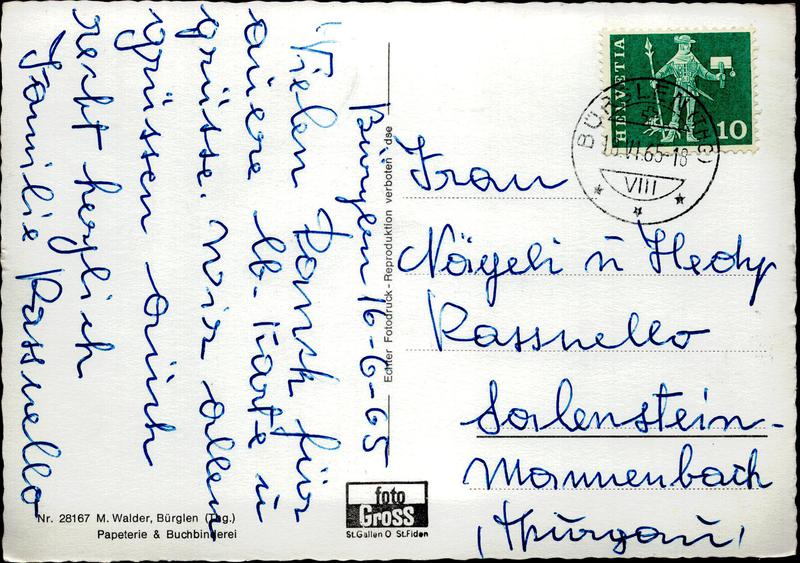 Bürglen 16-6-65
Vielen Dank für
euere lb. Karte u
grüsse. Wir allen
grüssen euch
recht herzlich
Familie Rassnello
Echter Fotodruck - Reproduktion verboten dse
HELVETIA
10
BÜRGLEN (THG)
16.VI.65-18
VIII
Frau
Nägeli u Hedy
Rassnello
Salenstein-
Mannenbach
(Thurgau)
foto
Gross
St.Gallen O St.Fiden
Nr. 28167 M. Walder, Bürglen (Thg.)
Papeterie & Buchbinderei